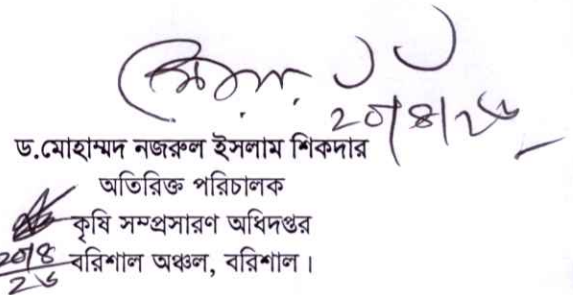 ২০/৪/২৬
ড.মোহাম্মদ নজরুল ইসলাম শিকদার
অতিরিক্ত পরিচালক
কৃষি সম্প্রসারণ অধিদপ্তর
২০/৪
২৬
বরিশাল অঞ্চল, বরিশাল।